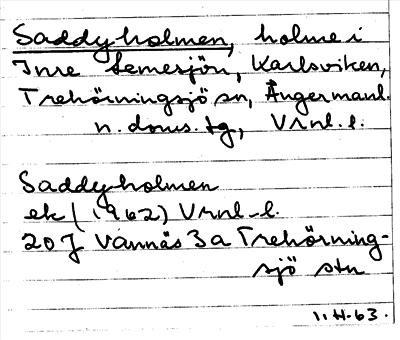 Saddyholmen, holme i
Inre Lemesjön, Karlsviken,
Trehörningsjö sn, Ångermanl.
n. doms. tg, Vrnl. l.
Saddyholmen
ek (1962) Vrnl-l.
20 J Vännäs 3a Trehörning-
sjö stn
11.4.63.